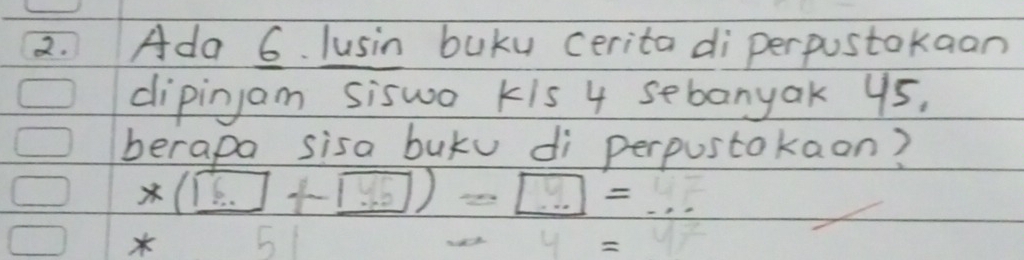 2. Ada 6. lusin buku cerita di perpustakaan
dipinjam siswa kls 4 sebanyak 45.
berapa sisa buku di perpustakaan?
*(6.. + 45) - 4... = 47...
* 51 - 4 = 47